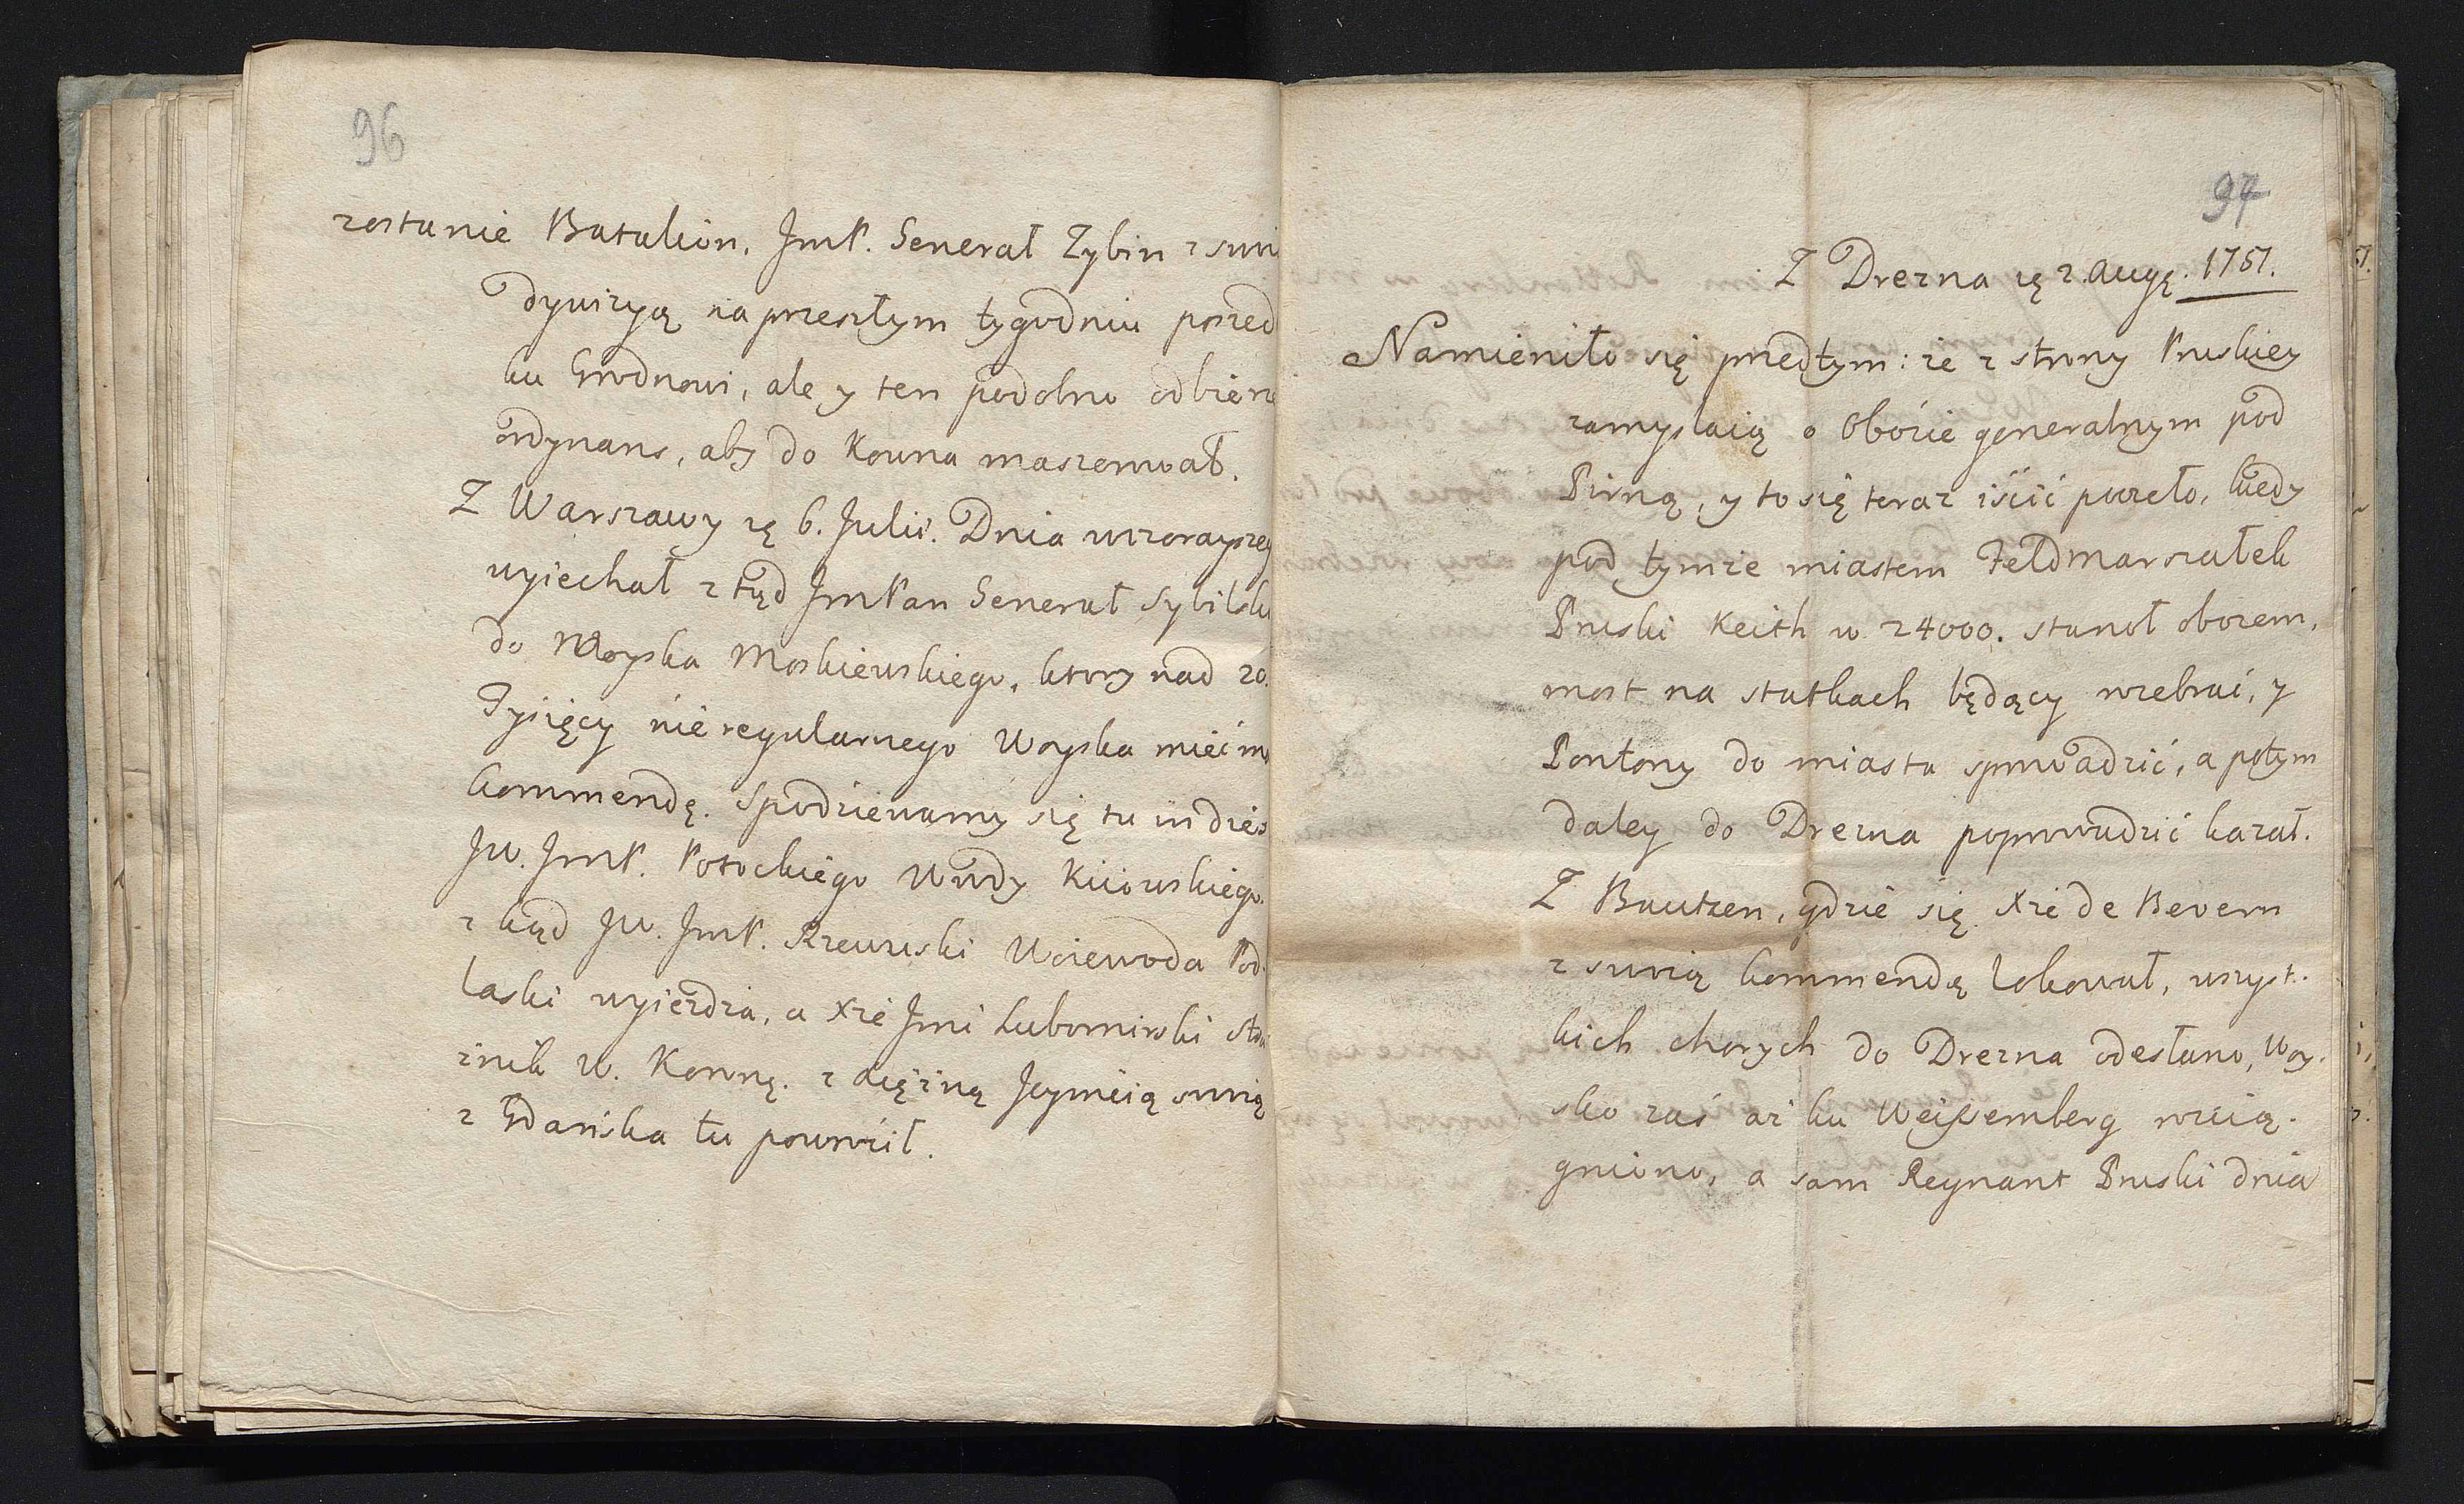 96
zostanie Batalion. JmP. Generał Zybin z swoi
dywizyą na przeszłym tygodniu poszed
ku Grodnowi, ale y ten podobno odbierze
ordynans, aby do Kowna maszerował.
Z Warszawy zę 6. Julii. Dnia wczorayszeg
wyiechał z tąd JmPan Generał Sybilski
do Woyska Moskiewskiego, ktory nad 20.
Tysięcy nie regularnego Woyska mieć ma
kommendę. Spodziewamy się tu in dies
JW. JmP. Potockiego Wwdy Kiiowskiego.
z kąd JW. JmP. Rzewuski Woiewoda Pod.
laski wyieżdża, a Xże Jmć Lubomirski Stra
żnik W. Koronę. z Xiężną Jeymcią swoią
z Gdańska tu powrócił.
97
Z Drezna zę 2. Augę. 1757.
Namieniło się przedtym: że z strony Pruskiey
zamyslaią o Obózie generalnym pod
Pirną, y to się teraz iścić poczeło, kiedy
pod tymże miastem Feldmarszałek
Pruski Keith w 24000. stanoł obozem,
most na statkach będący rozebrać, y
Pontony do miasta sprowadzić, a potym
daley do Drezna poprowadzić kazał.
Z Bautzen, gdzie się Xże de Bevern
z swoią kommendą lokował, wszyst.
kich chorych do Drezna odesłano, Woy.
sko zaś aż ku Weissemberg rozcią.
gniono, a sam Regnant Pruski dnia